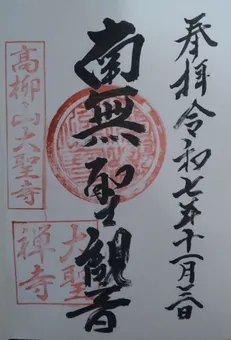 奉拝 令和七年十一月三日
南無聖観音
高柳山大聖寺
大聖禅寺